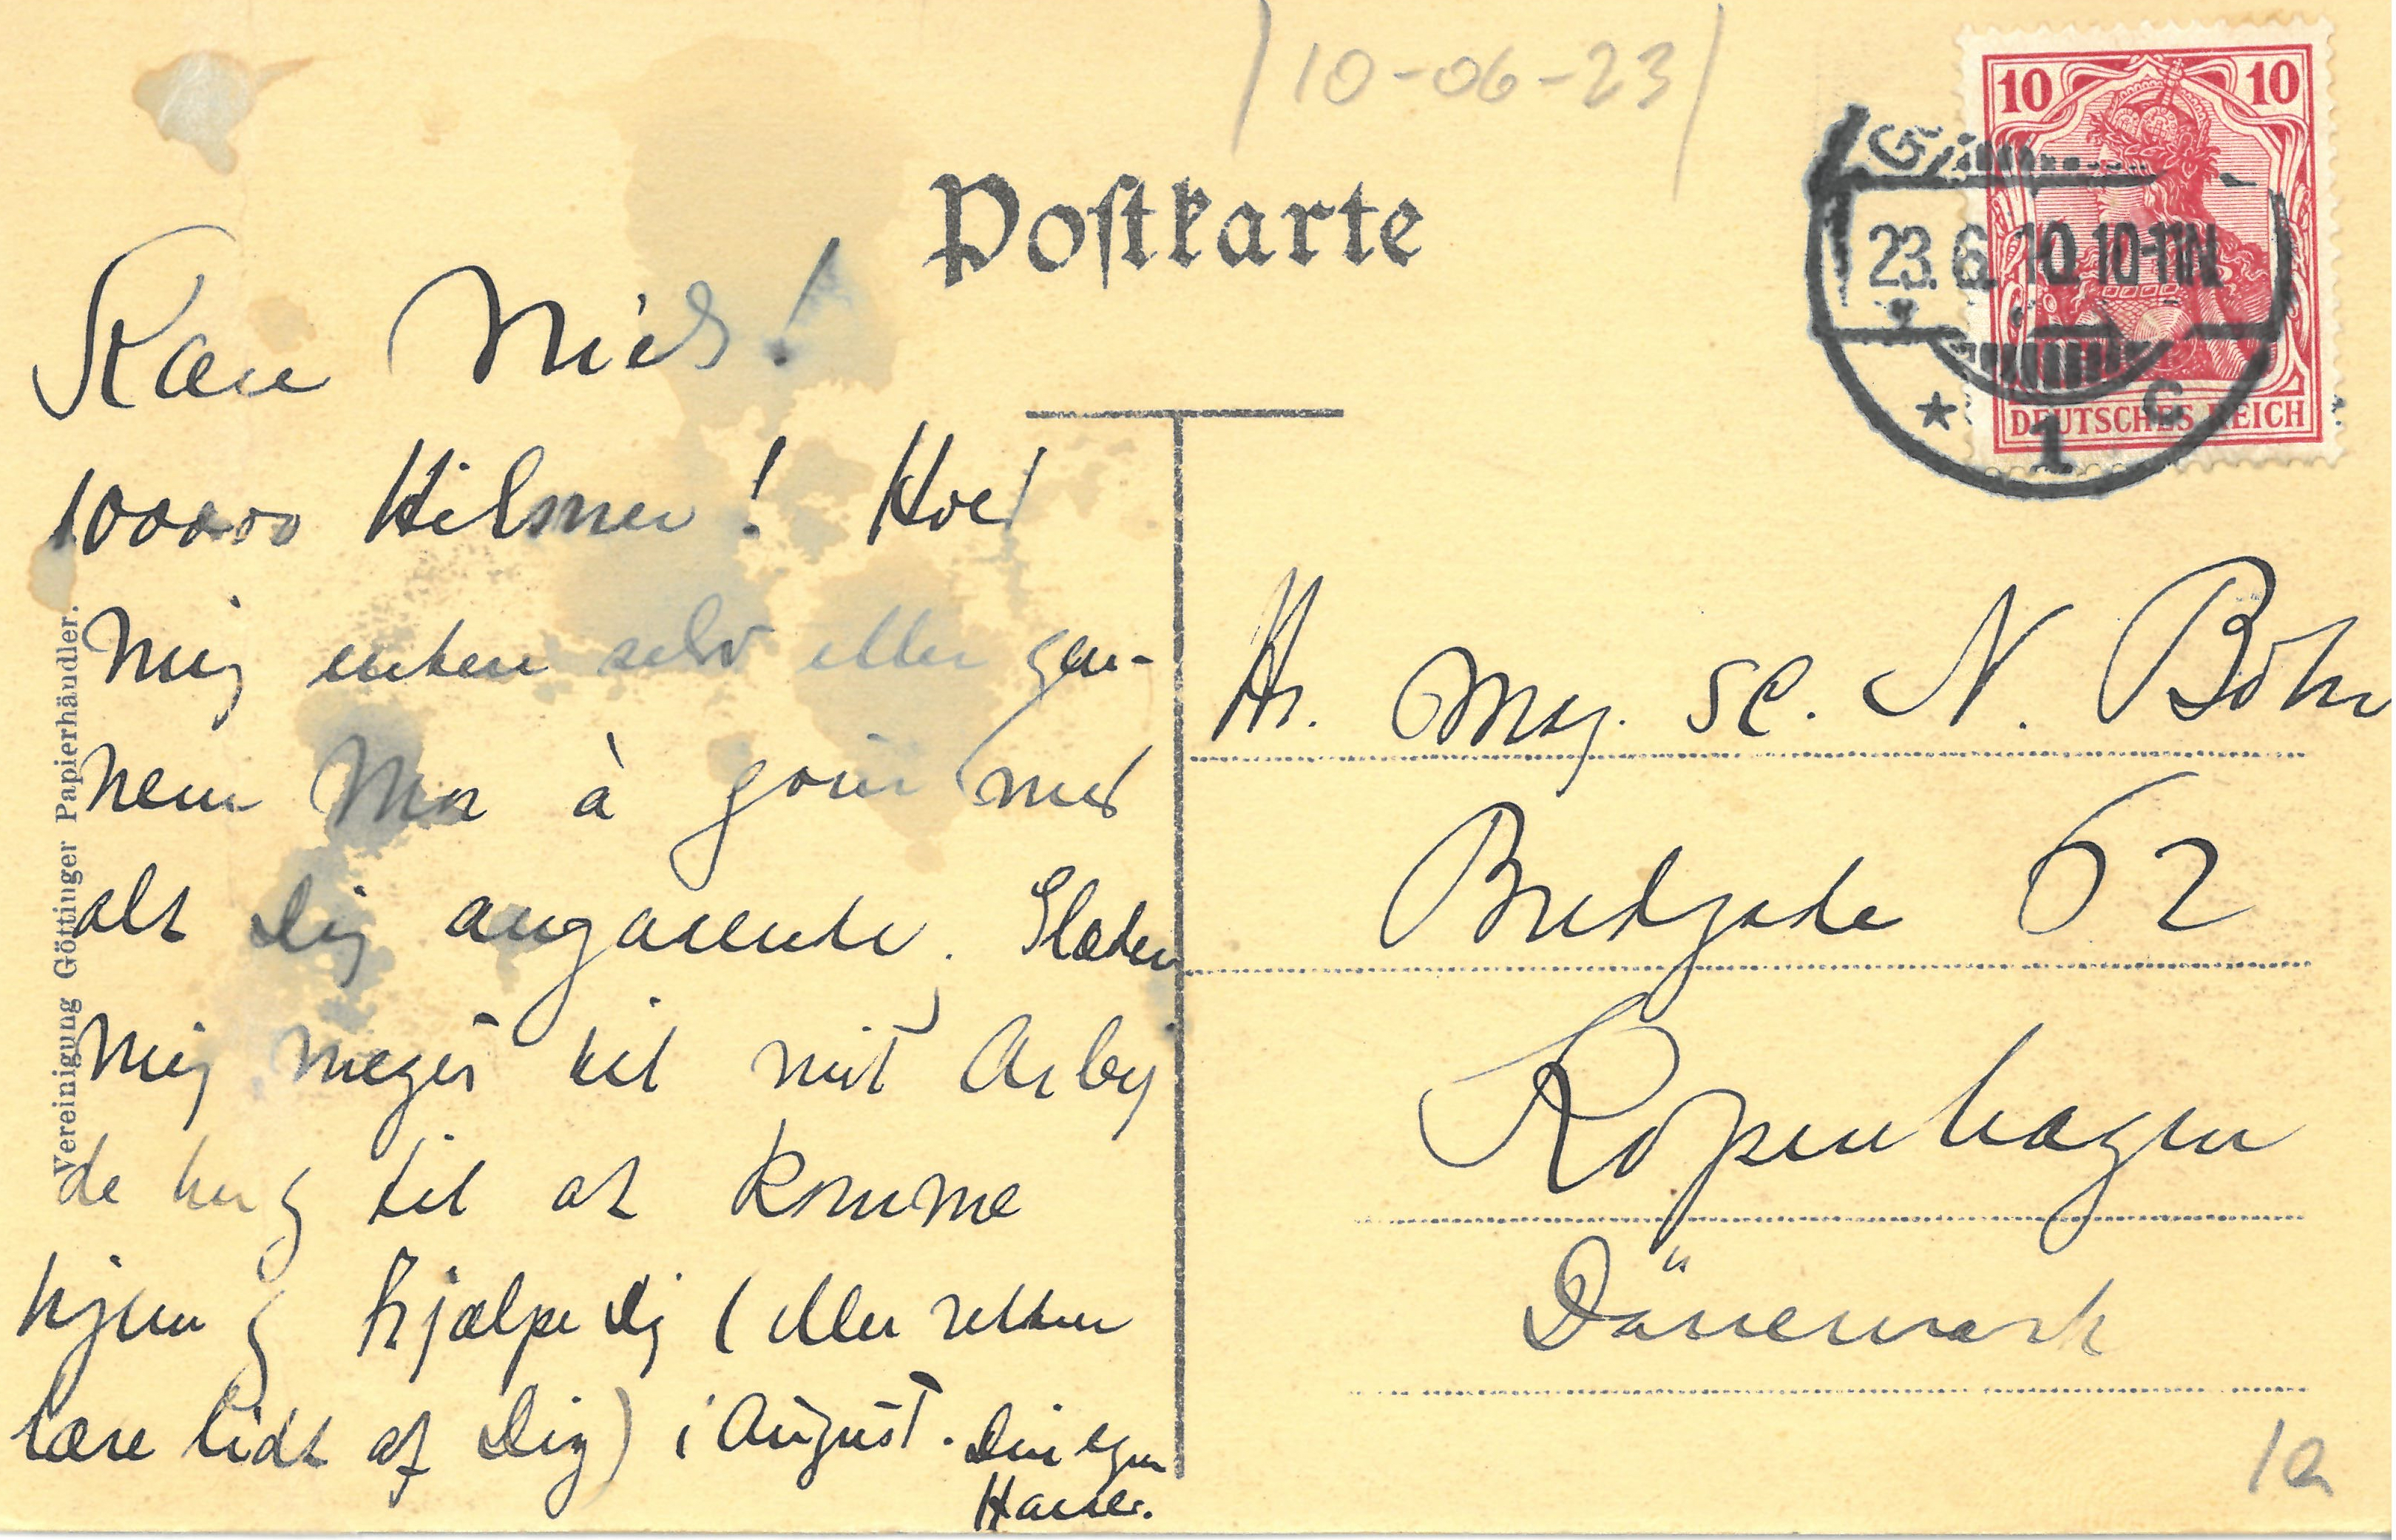 /10-06-23/
Postkarte
10 10
DEUTSCHES REICH
23.6.10.10-11N.
* 1 c
Kære Niels!
100000 Hilsner! Hold
mig enten selv eller gen-
nem Mor à jour med
alt Dig angaaende. Glæder
mig meget til mit Arbej
de her og til at komme
hjem og hjælpe dig (eller rettere
lære lidt af Dig) i August. Din egen
Harald.
Hr. Mag. sc. N. Bohr
Bredgade 62
Kopenhagen
Dänemark
Vereinigung Göttinger Papierhändler.
1a